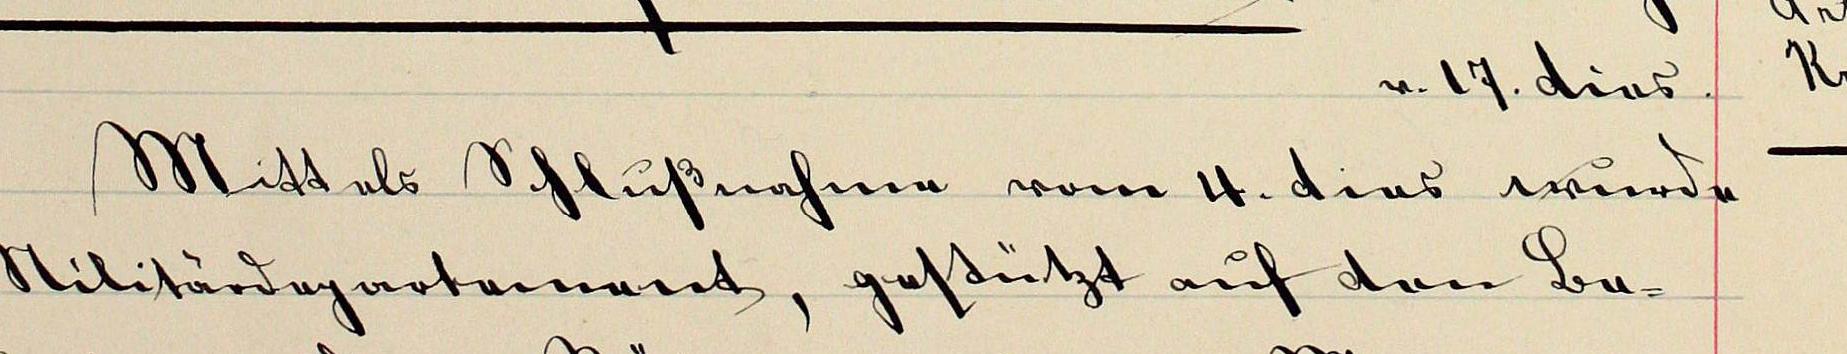 v. 17. dies.
Mittels Schlußnahme vom 4. dies wurde
Militärdepartement, gestützt auf den Be-